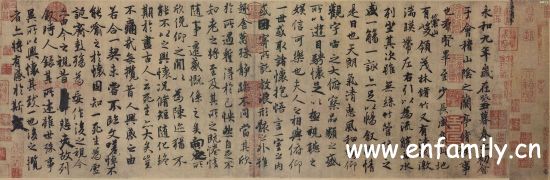 永和九年歲在癸丑暮春之初會
于會稽山陰之蘭亭脩稧事
也群賢畢至少長咸集此地
有崇山峻領茂林脩竹又有清流激
湍暎帶左右引以為流觴曲水
列坐其次雖無絲竹管弦之
盛一觴一詠亦足以暢敘幽情
是日也天朗氣清惠風和暢仰
觀宇宙之大俯察品類之盛
所以遊目騁懷足以極視聽之
娛信可樂也夫人之相與俯仰
一世或取諸懷抱悟言一室之內
或因寄所託放浪形骸之外雖
趣舍萬殊靜躁不同當其欣
於所遇蹔得於己怏然自足不
知老之將至及其所之既惓情
隨事遷感慨係之矣向之所
欣俛仰之閒以為陳跡猶不
能不以之興懷況脩短隨化終
期於盡古人云死生亦大矣豈
不痛哉每攬昔人興感之由
若合一契未嘗不臨文嗟悼不
能喻之於懷固知一死生為虛
誕齊彭殤為妄作後之視今
亦由今之視昔悲夫故列
敘時人錄其所述雖世殊事
異所以興懷其致一也後之攬
者亦將有感於斯文
www.enfamily.cn